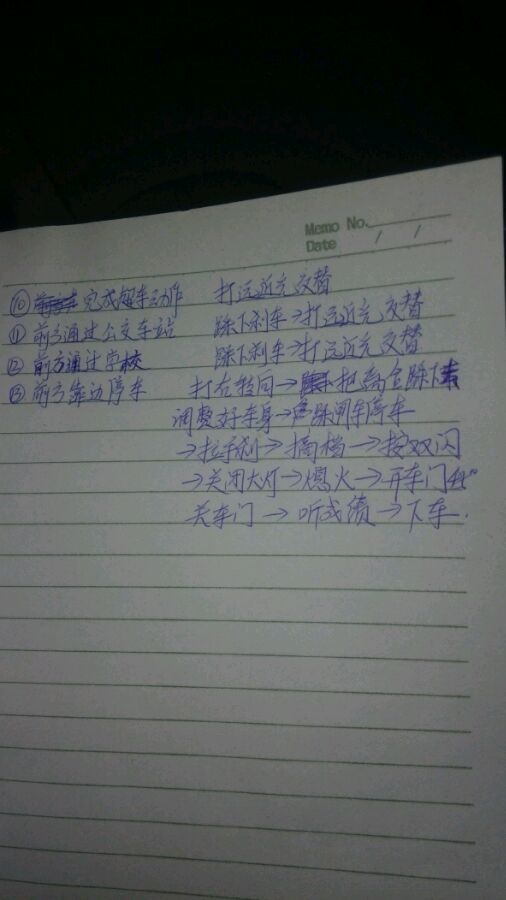 Memo No.
Date / /
⑩ 完成超车动作 打远近光交替
⑪ 前方通过公交车站 踩下刹车→打远近光交替
⑫ 前方通过学校 踩下刹车→打远近光交替
⑬ 前方靠边停车 打右转向→把离合踩下
调整好车身→踩闸车停车
→拉手刹→摘档→按双闪
→关闭大灯→熄火→开车门
关车门→听成绩→下车.